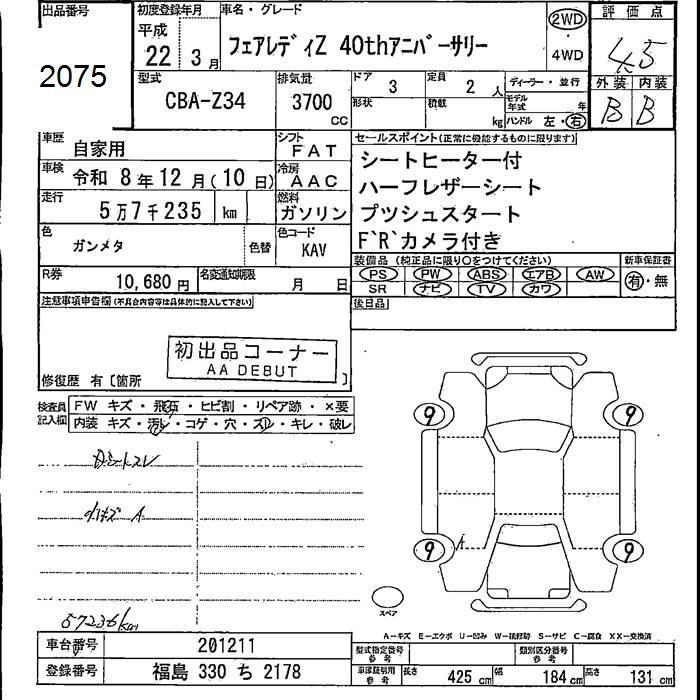 出品番号
2075
初度登録年月
平成
22 3月
車名・グレード
フェアレディZ 40thアニバーサリー
2WD
4WD
評価点
4.5
外装 内装
B B
型式
CBA-Z34
排気量
3700 cc
ドア
3
形状
定員
2 人
積載
kg
ディーラー・並行
モデル年式 年
ハンドル 左・右
車歴
自家用
シフト
FAT
車検
令和 8年12月(10日)
冷房
AAC
走行
5万7千235 km
燃料
ガソリン
色
ガンメタ
色替
色コード
KAV
R券
10,680円
名変通知期限
月 日
セールスポイント(正常に機能するものに限ります)
シートヒーター付
ハーフレザーシート
プツシュスタート
F`R`カメラ付き
装備品 (純正品に限り○をつけてください)
新車保証書
PS PW ABS エアB AW
SR ナビ TV カワ
有・無
後日品
注意事項申告欄(不具合内容等は具体的に記入して下さい)
初出品コーナー
AA DEBUT
修復歴 有〔箇所 〕
検査員記入欄
FW キズ・飛石・ヒビ割・リペア跡・×要
内装 キズ・汚レ・コゲ・穴・スレ・キレ・破レ
57236km
9 9
9 9
A
スペア
A-キズ E-エクボ U-凹み W-補修跡 S-サビ C-腐食 XX-交換済
車台番号 201211
登録番号 福島 330 ち 2178
型式指定番号 参考
類別区分番号 参考
車庫証明用 参考
長さ 425 cm 幅 184 cm 高さ 131 cm